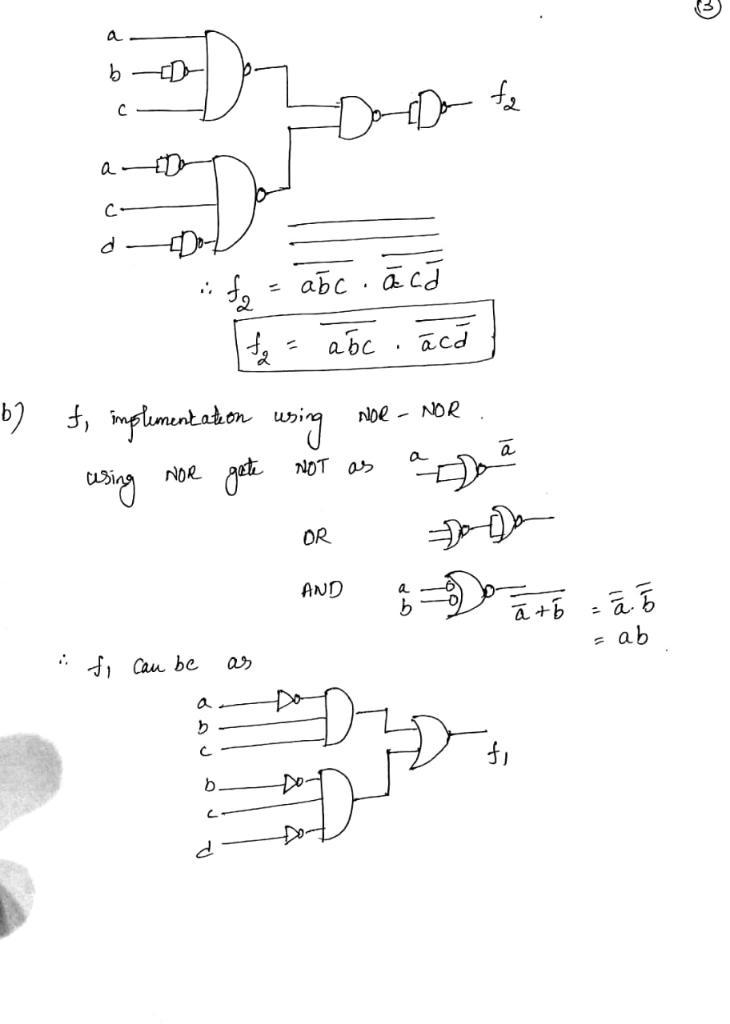 3
a
b
c
f₂
a
c
d
∴ f₂ = \overline{\overline{\overline{a\bar{b}c} . \overline{\bar{a}c\bar{d}}}}
f₂ = \overline{a\bar{b}c} . \overline{\bar{a}c\bar{d}}
b) f₁ implementation using NOR - NOR .
using NOR gate NOT as a \bar{a}
OR
AND a b \overline{\bar{a}+\bar{b}} = \bar{\bar{a}}.\bar{\bar{b}}
= ab .
∴ f₁ can be as
a
b
c
f₁
b
c
d